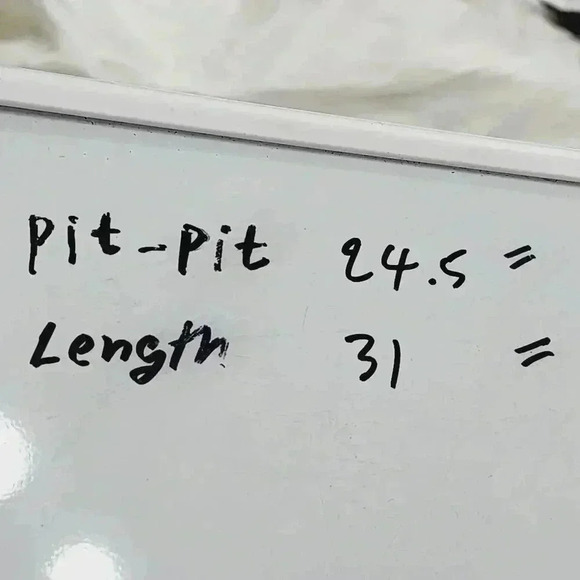 Pit-Pit 24.5 "
Length 31 "